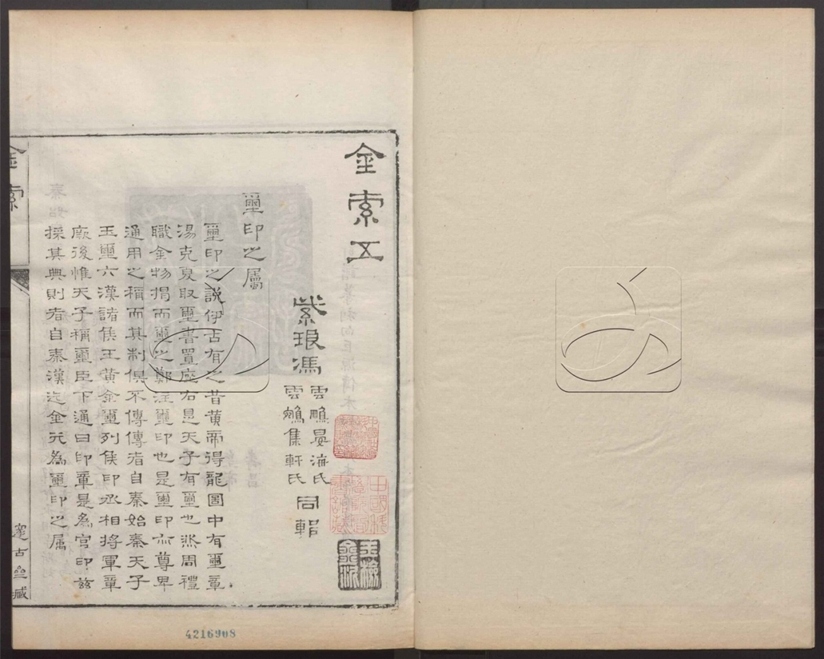 金索五
紫琅馮
雲鵬晏海氏
雲鵷集軒氏
同輯
璽印之屬
璽印之說伊古有之昔黃帝得龍圖中有璽章
湯克夏取璽書置座右是天子有璽也然周禮
職金物揭而璽之鄭注璽印也是璽印亦尊卑
通用之稱而其制俱不傳傳者自秦始秦天子
玉璽六漢諸侯王黃金璽列侯印丞相將軍章
厥後惟天子稱璽臣下通曰印章是為官印茲
採其典則者自秦漢迄金元為璽印之屬
金索
邃古齋藏
4216908